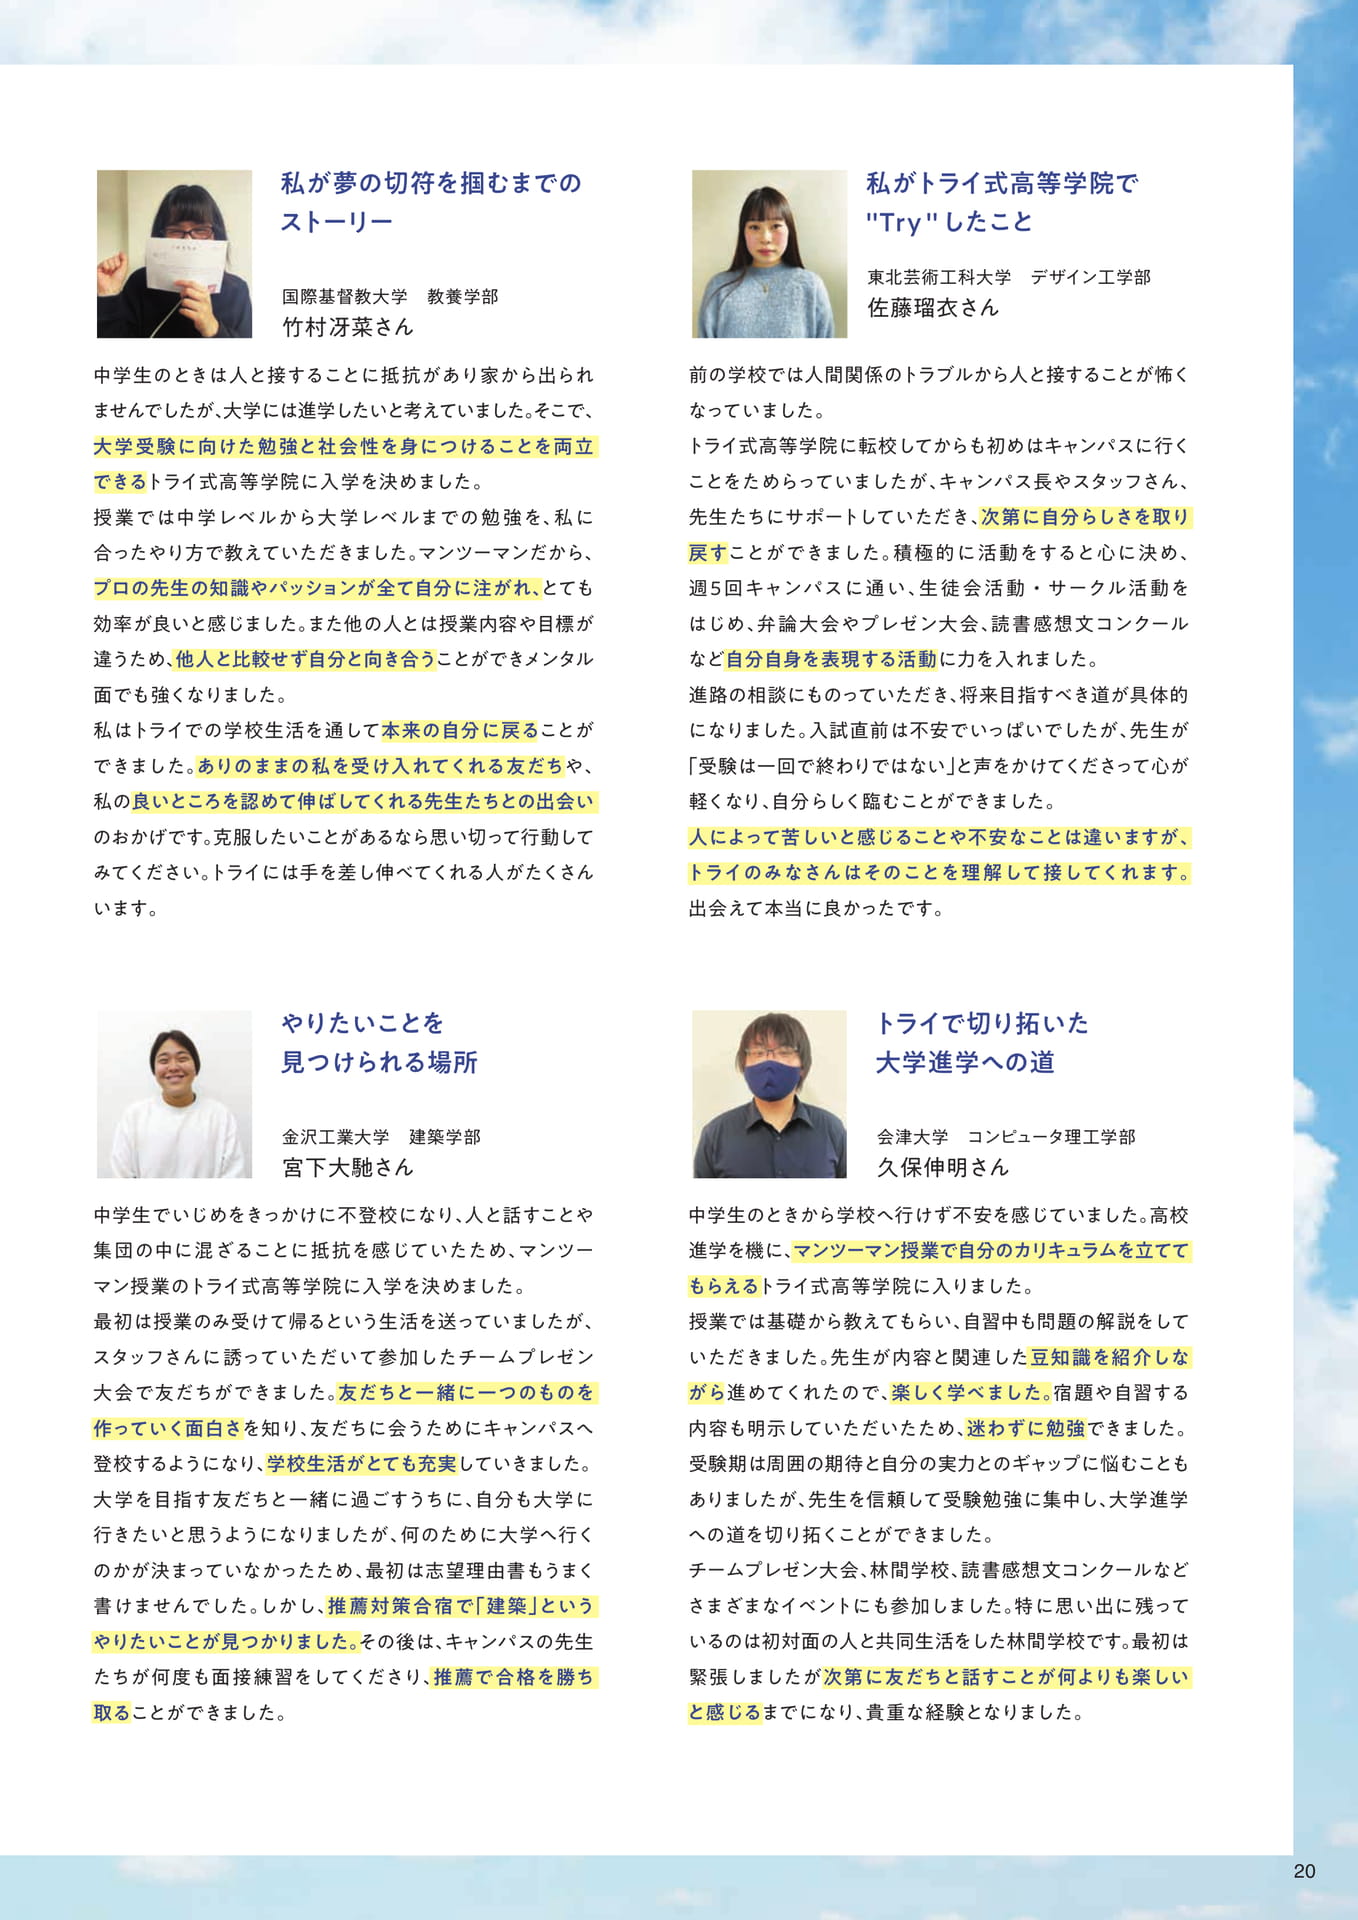 私が夢の切符を掴むまでの
ストーリー
国際基督教大学　教養学部
竹村冴菜さん
中学生のときは人と接することに抵抗があり家から出られ
ませんでしたが、大学には進学したいと考えていました。そこで、
大学受験に向けた勉強と社会性を身につけることを両立
できるトライ式高等学院に入学を決めました。
授業では中学レベルから大学レベルまでの勉強を、私に
合ったやり方で教えていただきました。マンツーマンだから、
プロの先生の知識やパッションが全て自分に注がれ、とても
効率が良いと感じました。また他の人とは授業内容や目標が
違うため、他人と比較せず自分と向き合うことができメンタル
面でも強くなりました。
私はトライでの学校生活を通して本来の自分に戻ることが
できました。ありのままの私を受け入れてくれる友だちや、
私の良いところを認めて伸ばしてくれる先生たちとの出会い
のおかげです。克服したいことがあるなら思い切って行動して
みてください。トライには手を差し伸べてくれる人がたくさん
います。
私がトライ式高等学院で
"Try"したこと
東北芸術工科大学　デザイン工学部
佐藤瑠衣さん
前の学校では人間関係のトラブルから人と接することが怖く
なっていました。
トライ式高等学院に転校してからも初めはキャンパスに行く
ことをためらっていましたが、キャンパス長やスタッフさん、
先生たちにサポートしていただき、次第に自分らしさを取り
戻すことができました。積極的に活動をすると心に決め、
週5回キャンパスに通い、生徒会活動・サークル活動を
はじめ、弁論大会やプレゼン大会、読書感想文コンクール
など自分自身を表現する活動に力を入れました。
進路の相談にものっていただき、将来目指すべき道が具体的
になりました。入試直前は不安でいっぱいでしたが、先生が
「受験は一回で終わりではない」と声をかけてくださって心が
軽くなり、自分らしく臨むことができました。
人によって苦しいと感じることや不安なことは違いますが、
トライのみなさんはそのことを理解して接してくれます。
出会えて本当に良かったです。
やりたいことを
見つけられる場所
金沢工業大学　建築学部
宮下大馳さん
中学生でいじめをきっかけに不登校になり、人と話すことや
集団の中に混ざることに抵抗を感じていたため、マンツー
マン授業のトライ式高等学院に入学を決めました。
最初は授業のみ受けて帰るという生活を送っていましたが、
スタッフさんに誘っていただいて参加したチームプレゼン
大会で友だちができました。友だちと一緒に一つのものを
作っていく面白さを知り、友だちに会うためにキャンパスへ
登校するようになり、学校生活がとても充実していきました。
大学を目指す友だちと一緒に過ごすうちに、自分も大学に
行きたいと思うようになりましたが、何のために大学へ行く
のかが決まっていなかったため、最初は志望理由書もうまく
書けませんでした。しかし、推薦対策合宿で「建築」という
やりたいことが見つかりました。その後は、キャンパスの先生
たちが何度も面接練習をしてくださり、推薦で合格を勝ち
取ることができました。
トライで切り拓いた
大学進学への道
会津大学　コンピュータ理工学部
久保伸明さん
中学生のときから学校へ行けず不安を感じていました。高校
進学を機に、マンツーマン授業で自分のカリキュラムを立てて
もらえるトライ式高等学院に入りました。
授業では基礎から教えてもらい、自習中も問題の解説をして
いただきました。先生が内容と関連した豆知識を紹介しな
がら進めてくれたので、楽しく学べました。宿題や自習する
内容も明示していただいたため、迷わずに勉強できました。
受験期は周囲の期待と自分の実力とのギャップに悩むことも
ありましたが、先生を信頼して受験勉強に集中し、大学進学
への道を切り拓くことができました。
チームプレゼン大会、林間学校、読書感想文コンクールなど
さまざまなイベントにも参加しました。特に思い出に残って
いるのは初対面の人と共同生活をした林間学校です。最初は
緊張しましたが次第に友だちと話すことが何よりも楽しい
と感じるまでになり、貴重な経験となりました。
20